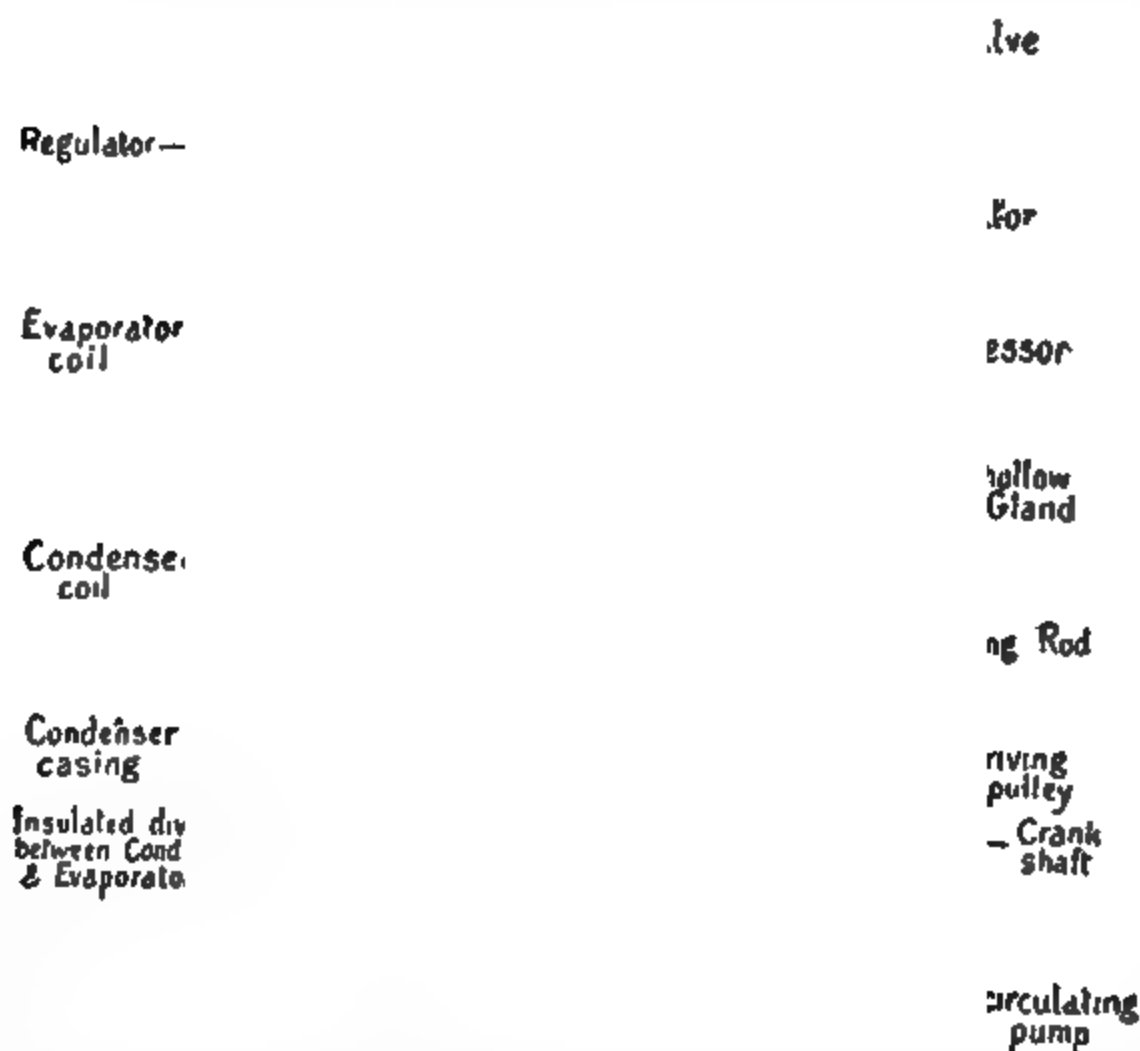 Regulator—
Evaporator
coil
Condense
coil
Condenser
casing
Insulated div
between Cond
& Evaporato
lve
tor
essor
hollow
Gland
ng Rod
riving
pulley
— Crank
shaft
irculating
pump